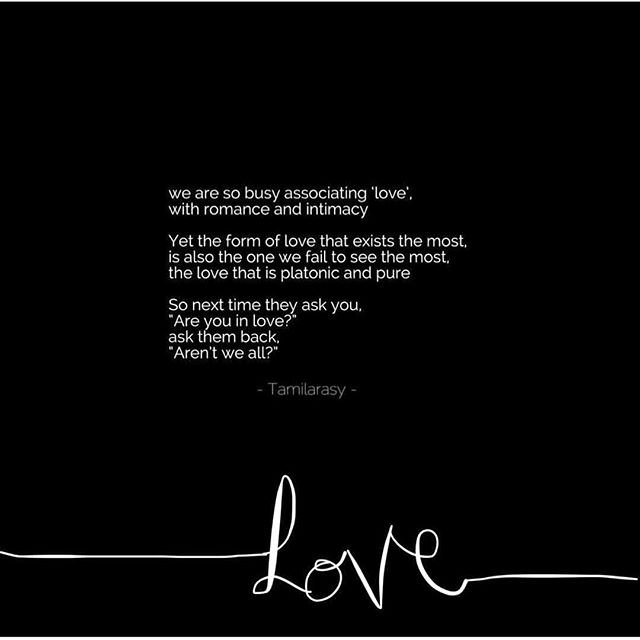 we are so busy associating 'love',
with romance and intimacy
Yet the form of love that exists the most,
is also the one we fail to see the most,
the love that is platonic and pure
So next time they ask you,
"Are you in love?"
ask them back,
"Aren't we all?"
- Tamilarasy -
Love